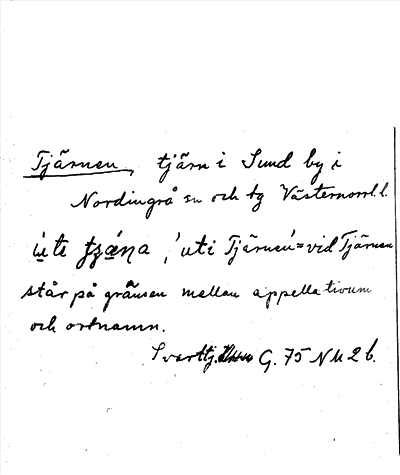 Tjärnen, tjärn i Sund by i
Nordingrå sn och tg Västernorrl. l.
'uti Tjärnen' = vid Tjärnen
står på gränsen mellan appellativum
och ortnamn.
Svarttj. G. 75 N M 2 b.